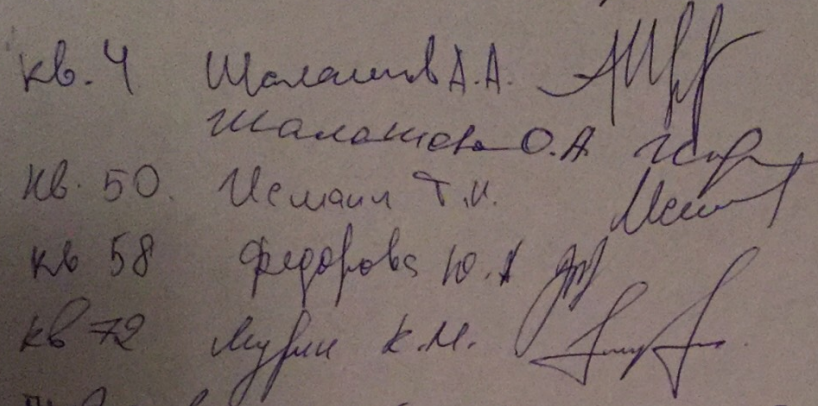 кв. 4 Шалашов А.А.
Шалашова О.А
кв. 50. Исмаил Т.И.
кв 58 Федорова Ю.А
кв 72 Мурин К.М.